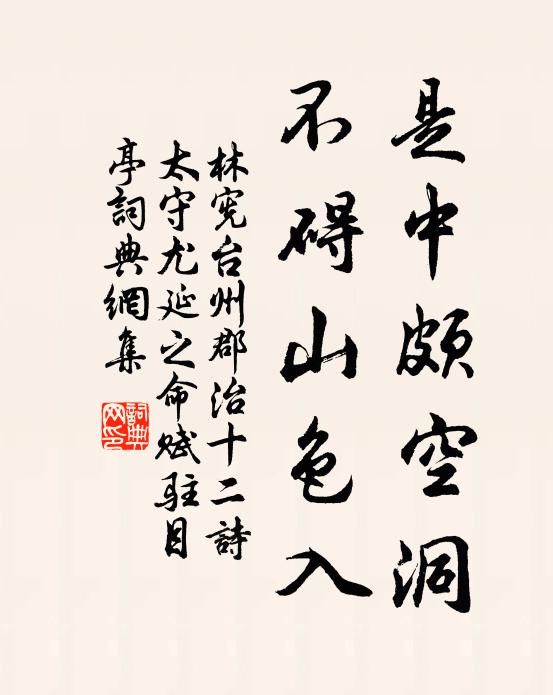 是中頗空洞
不碍山色入
林宪台州郡治十二詩
太守尤延之命赋駐目
亭詞典網集
詞典
网印